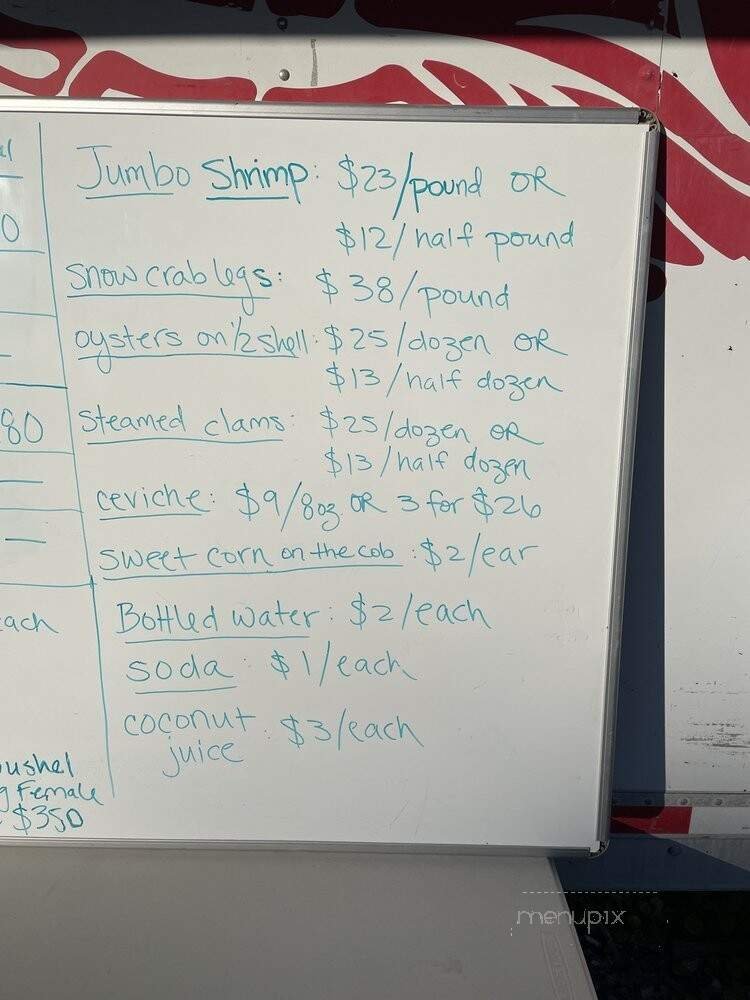 Jumbo Shrimp: $23/pound OR
$12/half pound
snow crab legs: $38/pound
oysters on 1/2 shell: $25/dozen OR
$13/half dozen
steamed clams: $25/dozen OR
$13/half dozen
ceviche: $9/8oz OR 3 for $26
sweet corn on the cob: $2/ear
Bottled water: $2/each
soda: $1/each
coconut juice: $3/each
80
each
Female
$350
menupix